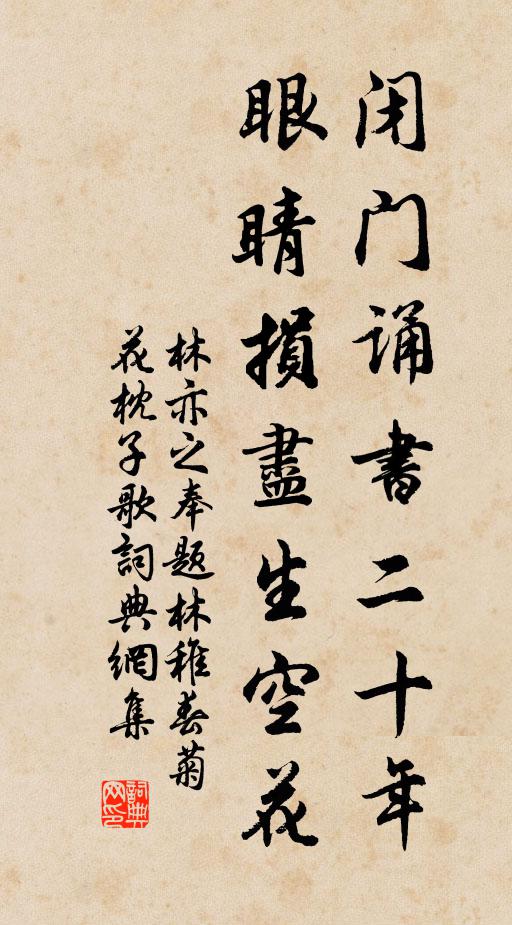 闭门诵書二十年
眼睛損盡生空花
林亦之奉题林稚春菊
花枕子歌詞典網集
詞典
网印